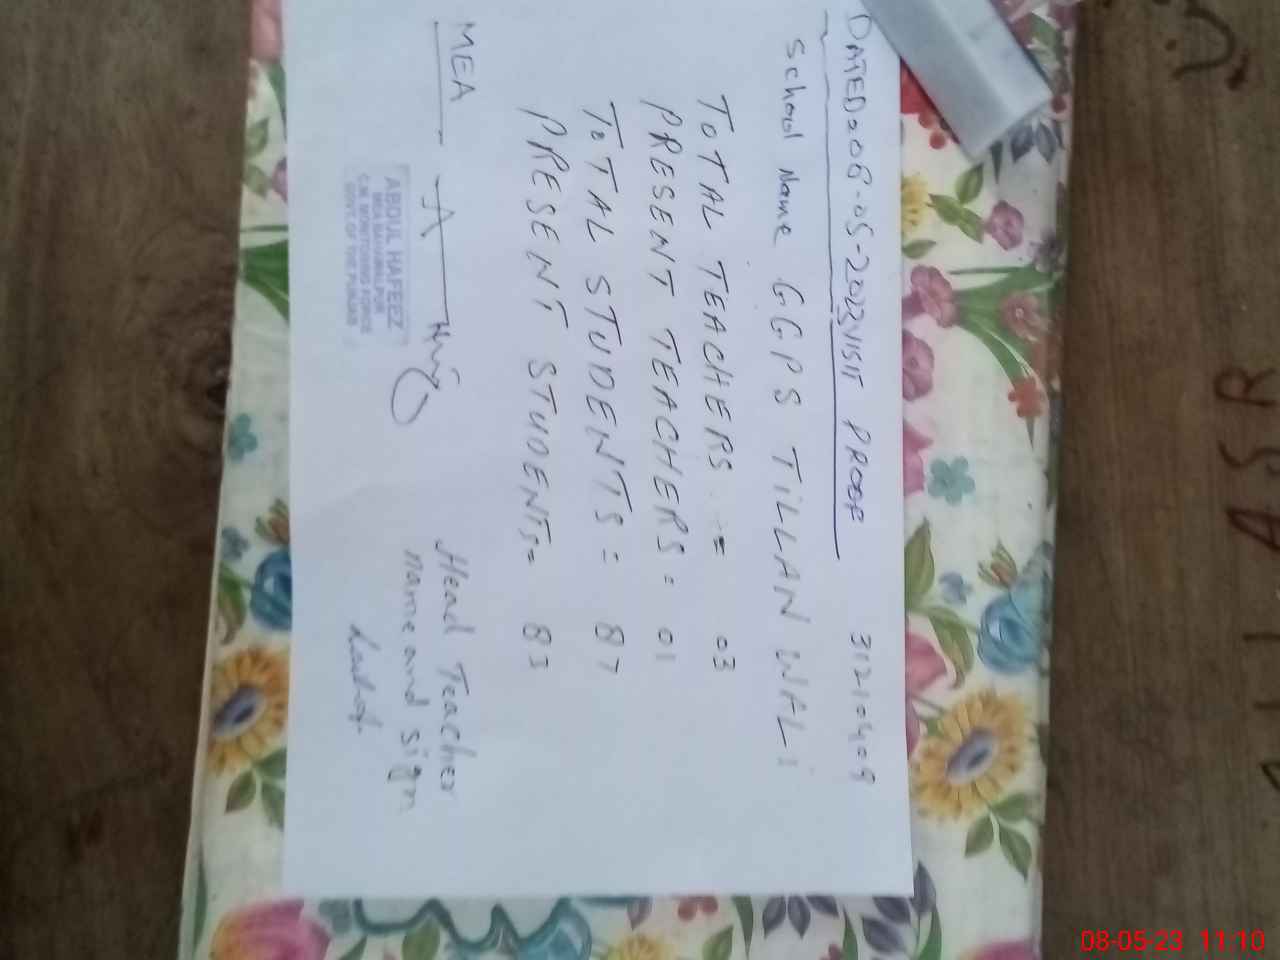 DATED: 08-05-2023 VISIT PROOF 31210409
School Name GGPS TILLAN WALI
TOTAL TEACHERS = 03
PRESENT TEACHERS = 01
TOTAL STUDENTS = 87
PRESENT STUDENTS = 83
MEA
ABDUL HAFEEZ
MEA BAHAWALPUR
C.M. MONITORING FORCE
GOVT. OF THE PUNJAB
Head Teacher
name and sign
08-05-23 11:10